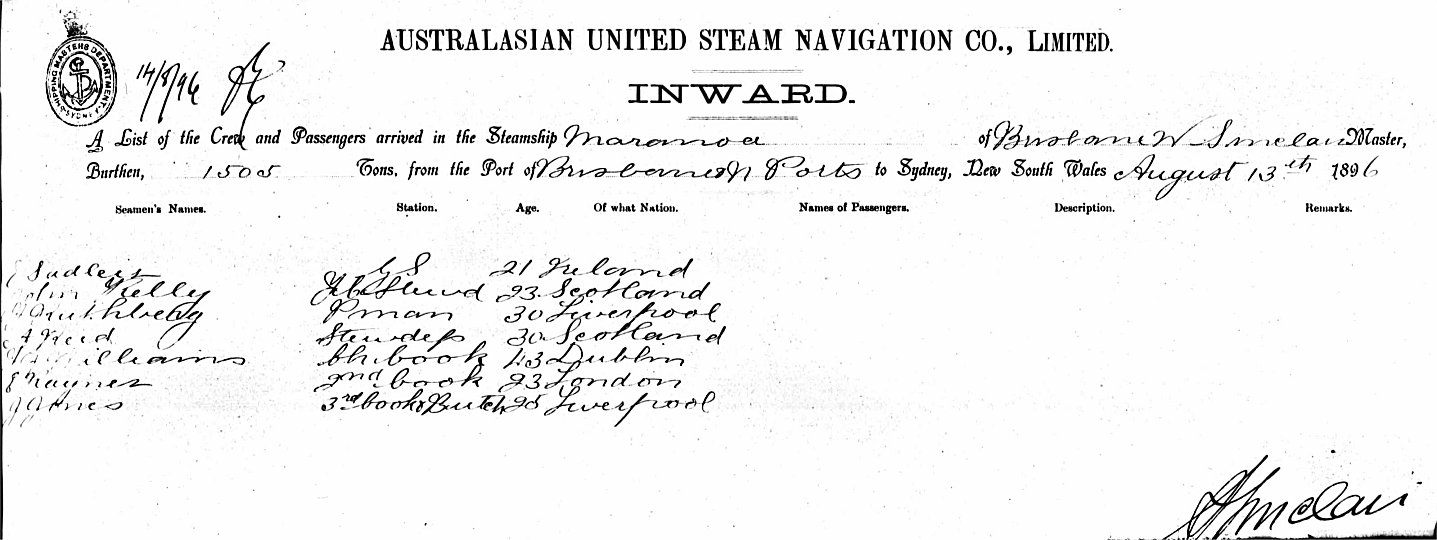 SHIPPING MASTERS DEPARTMENT. SYDNEY
14/8/96
AUSTRALASIAN UNITED STEAM NAVIGATION CO., LIMITED.
INWARD.
A List of the Crew and Passengers arrived in the Steamship Maranoa of Brisbane W Sinclair Master,
Burthen, 1505 Tons, from the Port of Brisbane & N Ports to Sydney, New South Wales August 13th 1896
Seamen's Names. Station. Age. Of what Nation. Names of Passengers. Description. Remarks.
Sadleir G S 21 Ireland
John Kelly 23 Scotland
Pman 30 Liverpool
A Reid Stewdess 30 Scotland
Williams Ch. Cook 43 Dublin
E Haynes 2nd Cook 23 London
J Jones 3rd Cook & Butch 25 Liverpool
Sinclair